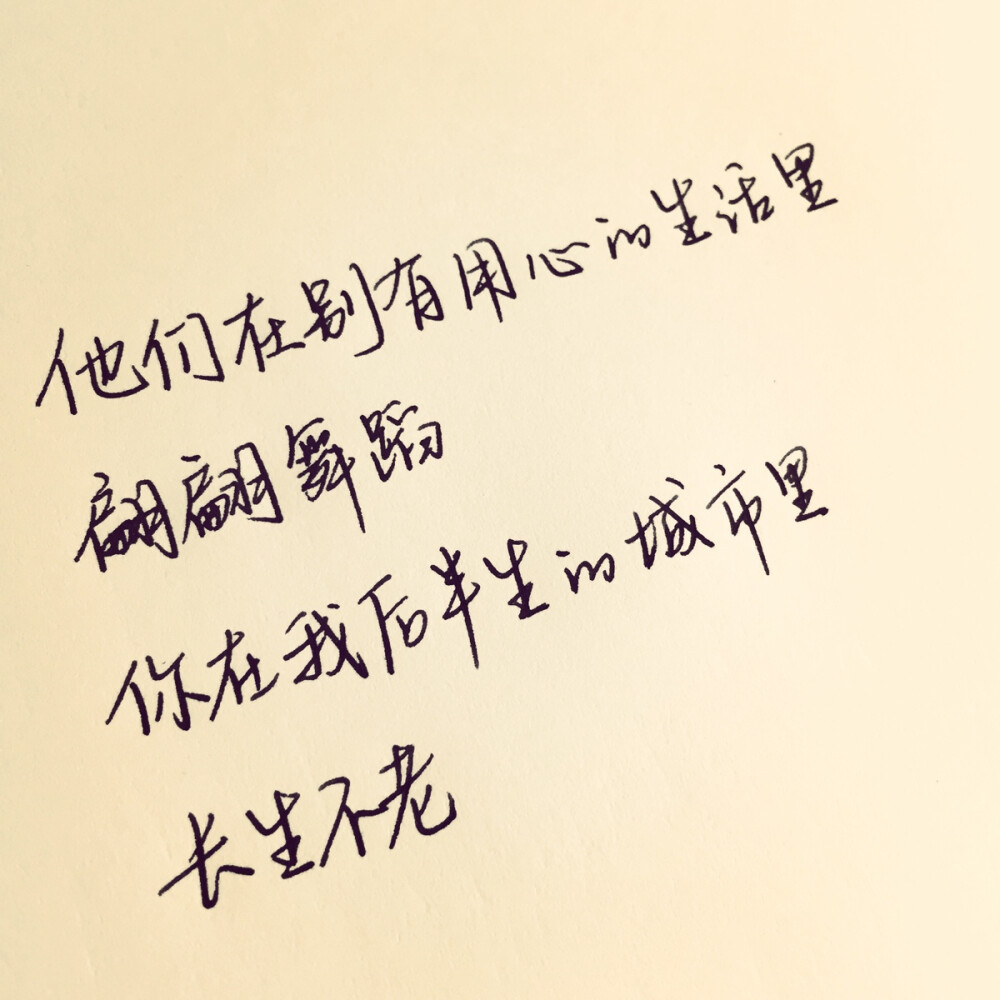 他们在别有用心的生活里
翩翩舞蹈
你在我后半生的城市里
长生不老